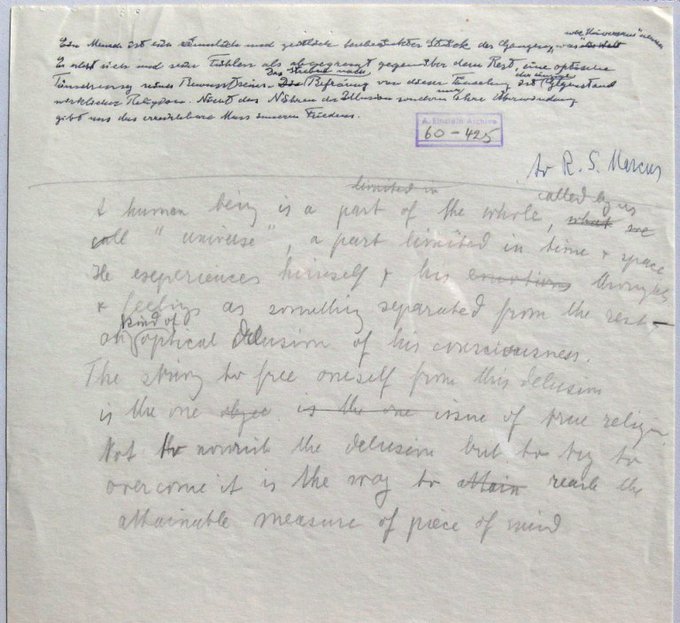 was wir "Universum" nennen
Ein Mensch ist ein räumlich und zeitlich beschränktes Stück des Ganzen,
Er erlebt sich und sein Fühlen als abgegrenzt gegenüber dem Rest, eine optische
Das Streben nach
Täuschung seines Bewusstseins. Die Befreiung von dieser Täuschung ist Gegenstand
wirklicher Religion. Nicht das Nähren der Illusion sondern nur ihre Überwindung
gibt uns das erreichbare Mass inneren Friedens.
A. Einstein Archive
60-425
to R. S. Marcus
limited in called by us
A human being is a part of the whole, what we
call "universe", a part limited in time & space
He experiences himself & his emotions thoughts
& feelings as something separated from the rest –
kind of
an optical delusion of his consciousness.
The striving to free oneself from this delusion
is the one is the one issue of true religion
Not to nourish the delusion but to try to
overcome it is the way to attain reach the
attainable measure of piece of mind